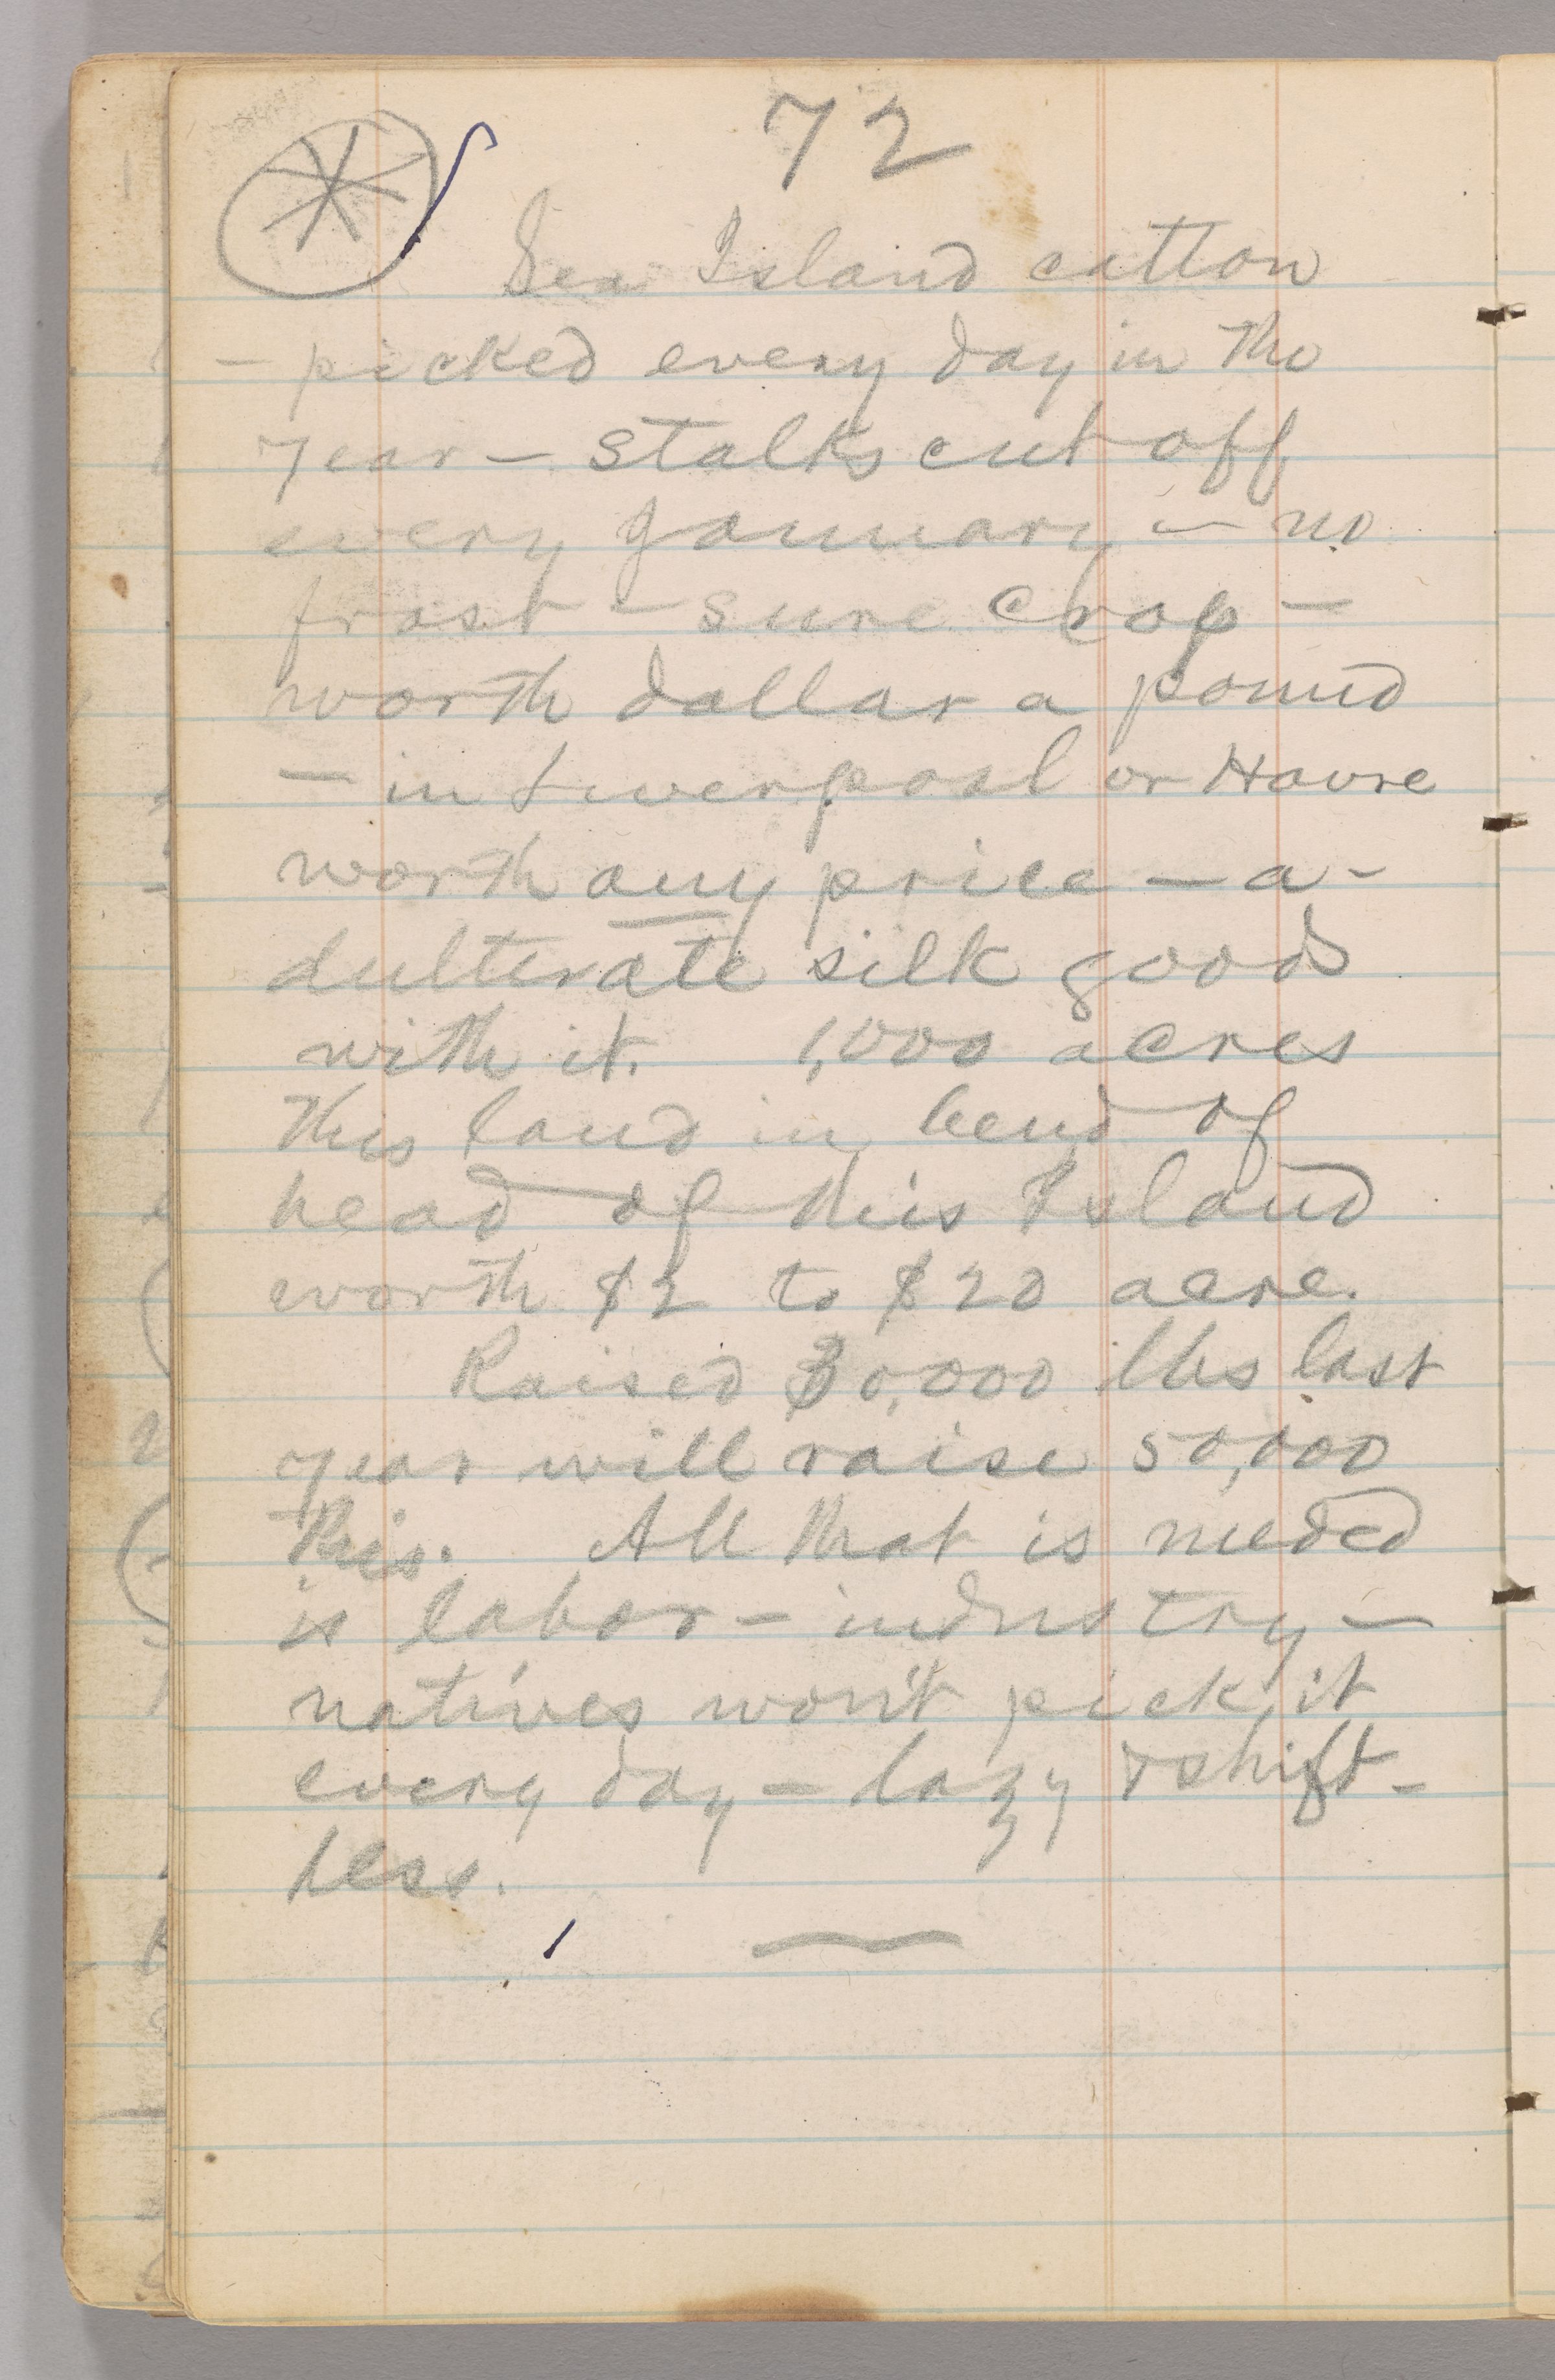 72
Sea Island cotton
- picked every day in the
year — stalks cut off
every January — no
frost — sure crop —
worth dollar a pound
— in Liverpool or Havre
worth any price — a-
dulterate silk goods
with it. 1,000 acres
this land in bend of
head of this Island
worth $2 to $20 acre.
Raised 30,000 lbs last
year will raise 50,000
this. All that is needed
is labor — industry —
natives won't pick it
every day — lazy & shift-
less.